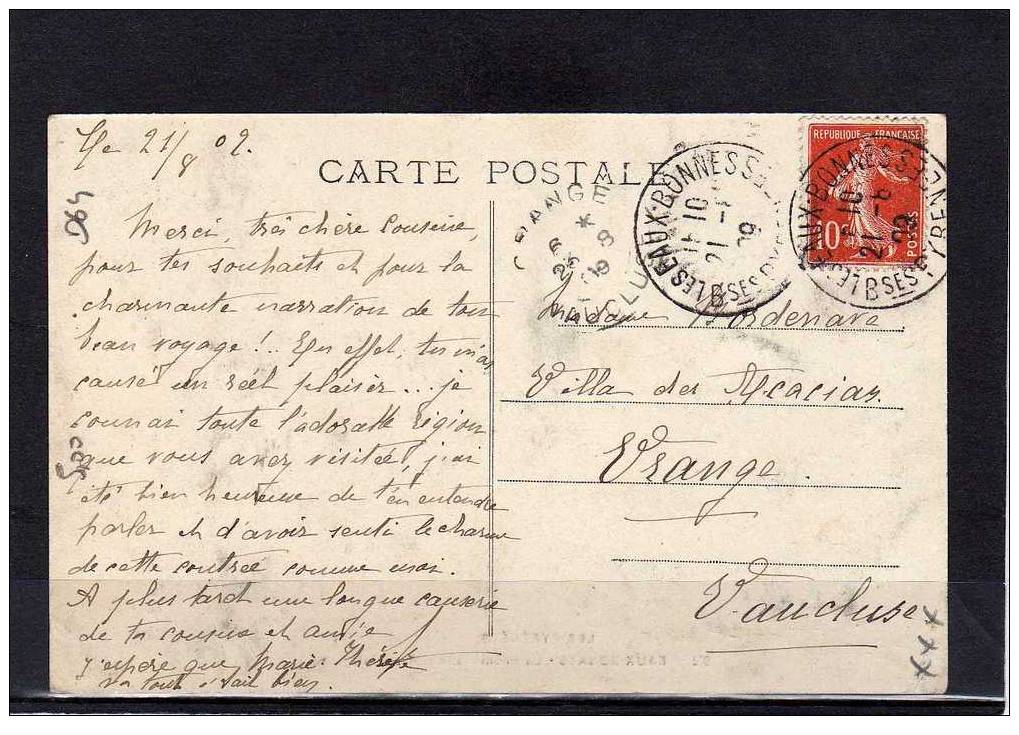 Le 21/8 09.
CARTE POSTALE
Merci, très chère cousine,
pour tes souhaits et pour la
charmante narration de ton
beau voyage !.. En effet, tu m'as
causé un réel plaisir... je
connais toute l'adorable région
que vous avez visitée, j'ai
été bien heureuse de t'en entendre
parler et d'avoir senti le charme
de cette contrée comme moi.
A plus tard une longue causerie
de ta cousine et amie
J'espère que Marie-Thérèse
va tout à fait bien.
Madame Bordenave
Villa des Acacias
Orange.
Vaucluse
REPUBLIQUE FRANÇAISE
10
POSTES
LES EAUX-BONNES
BSES PYRENEES
21 -8
09
ORANGE
VAUCLUSE
XXX